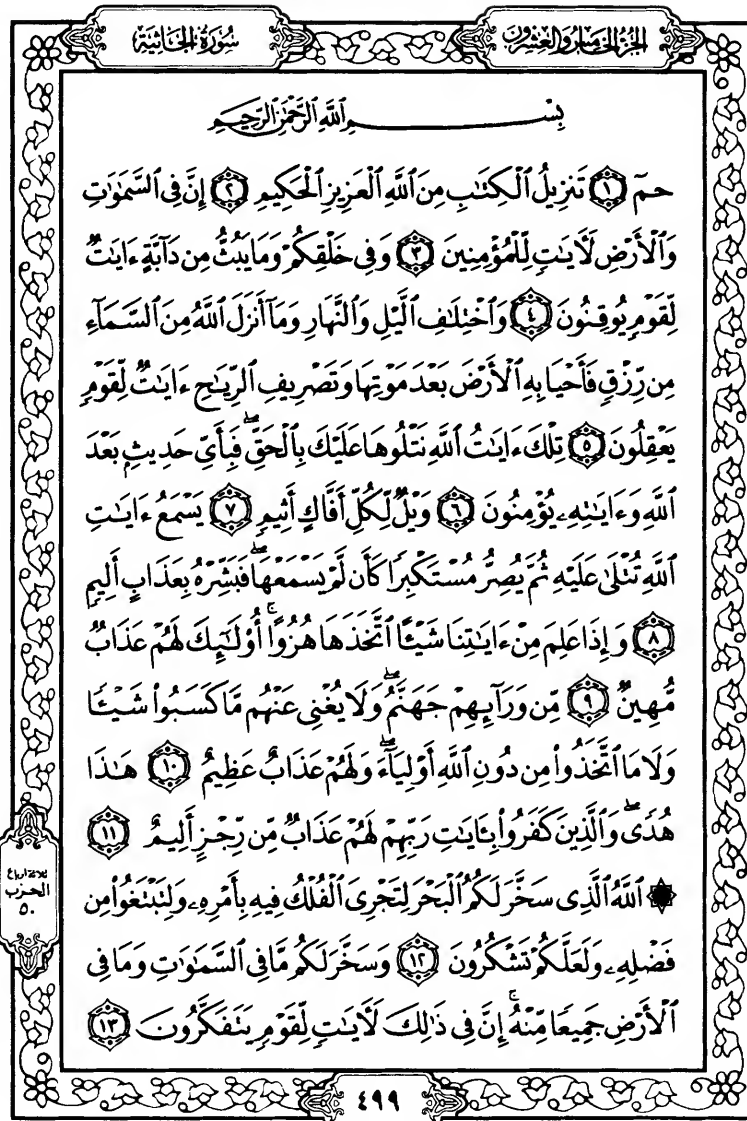 الجزء الخامس والعشرون
سُورَةُ الجَاثِيَة
بِسْمِ ٱللَّهِ ٱلرَّحْمَٰنِ ٱلرَّحِيمِ
حمٓ ١ تَنزِيلُ ٱلْكِتَٰبِ مِنَ ٱللَّهِ ٱلْعَزِيزِ ٱلْحَكِيمِ ٢ إِنَّ فِى ٱلسَّمَٰوَٰتِ
وَٱلْأَرْضِ لَءَايَٰتٍ لِّلْمُؤْمِنِينَ ٣ وَفِى خَلْقِكُمْ وَمَا يَبُثُّ مِن دَآبَّةٍ ءَايَٰتٌ
لِّقَوْمٍ يُوقِنُونَ ٤ وَٱخْتِلَٰفِ ٱلَّيْلِ وَٱلنَّهَارِ وَمَآ أَنزَلَ ٱللَّهُ مِنَ ٱلسَّمَآءِ
مِن رِّزْقٍ فَأَحْيَا بِهِ ٱلْأَرْضَ بَعْدَ مَوْتِهَا وَتَصْرِيفِ ٱلرِّيَٰحِ ءَايَٰتٌ لِّقَوْمٍ
يَعْقِلُونَ ٥ تِلْكَ ءَايَٰتُ ٱللَّهِ نَتْلُوهَا عَلَيْكَ بِٱلْحَقِّ ۖ فَبِأَىِّ حَدِيثٍۭ بَعْدَ
ٱللَّهِ وَءَايَٰتِهِۦ يُؤْمِنُونَ ٦ وَيْلٌ لِّكُلِّ أَفَّاكٍ أَثِيمٍ ٧ يَسْمَعُ ءَايَٰتِ
ٱللَّهِ تُتْلَىٰ عَلَيْهِ ثُمَّ يُصِرُّ مُسْتَكْبِرًا كَأَن لَّمْ يَسْمَعْهَا ۖ فَبَشِّرْهُ بِعَذَابٍ أَلِيمٍ
٨ وَإِذَا عَلِمَ مِنْ ءَايَٰتِنَا شَيْـًٔا ٱتَّخَذَهَا هُزُوًا ۚ أُو۟لَٰٓئِكَ لَهُمْ عَذَابٌ
مُّهِينٌ ٩ مِّن وَرَآئِهِمْ جَهَنَّمُ ۖ وَلَا يُغْنِى عَنْهُم مَّا كَسَبُوا۟ شَيْـًٔا
وَلَا مَا ٱتَّخَذُوا۟ مِن دُونِ ٱللَّهِ أَوْلِيَآءَ ۖ وَلَهُمْ عَذَابٌ عَظِيمٌ ١٠ هَٰذَا
هُدًى ۖ وَٱلَّذِينَ كَفَرُوا۟ بِـَٔايَٰتِ رَبِّهِمْ لَهُمْ عَذَابٌ مِّن رِّجْزٍ أَلِيمٌ ١١
۞ ٱللَّهُ ٱلَّذِى سَخَّرَ لَكُمُ ٱلْبَحْرَ لِتَجْرِىَ ٱلْفُلْكُ فِيهِ بِأَمْرِهِۦ وَلِتَبْتَغُوا۟ مِن
فَضْلِهِۦ وَلَعَلَّكُمْ تَشْكُرُونَ ١٢ وَسَخَّرَ لَكُم مَّا فِى ٱلسَّمَٰوَٰتِ وَمَا فِى
ٱلْأَرْضِ جَمِيعًا مِّنْهُ ۚ إِنَّ فِى ذَٰلِكَ لَءَايَٰتٍ لِّقَوْمٍ يَتَفَكَّرُونَ ١٣
ثلاثة أرباع
الحزب
٥٠
٤٩٩